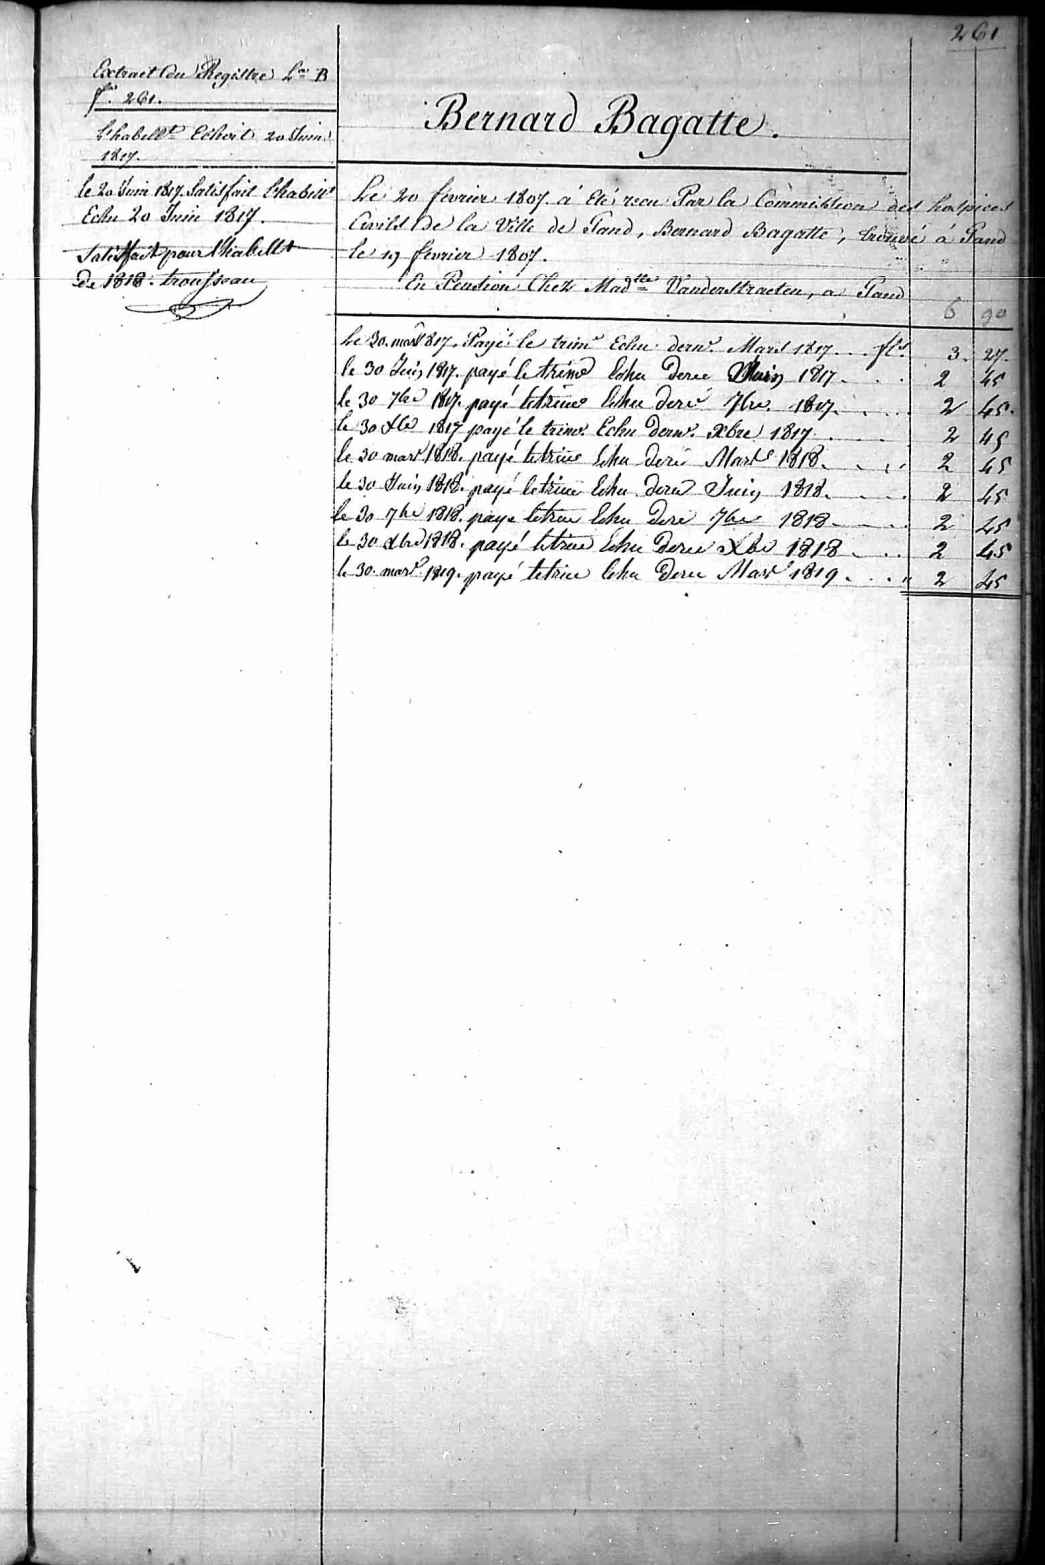 261
Extrait du Registre L.re B
f.o 261.
l'habell.t Echoit 20 Juin
1817.
le 20 Juin 1817. Satisfait l'habill.t
Echu 20 Juin 1817.
Satisfait pour l'habillt
de 1818. trousseau
Bernard Bagatte.
Le 20 fevrier 1807. á Eté recu Par la Commission des hospices
Civils de la Ville de Gand, Bernard Bagatte, trouvé á Gand
le 19 fevrier 1807.
En Pension Chez Mad.lle Vanderstraeten, a Gand
6 90
Le 30. mars 1817. Payé le trim.e Echu dern.r Mars 1817 . . . fls 3. 27.
le 30 Juin 1817. payé le trime Echu dere Juin 1817 . . . 2 45
le 30 7bre 1817. payé letrime Echu deré 7bre 1817. . . . 2 45.
le 30 Xbre 1817 payé le trime. Echu dern.r Xbre 1817 . . . 2 45
le 30 mars 1818. payé letrime Echu deré Mars 1818. . . . 2 45
le 30 Juin 1818. payé letrime Echu dere Juin 1818. . . . 2 45
le 30 7bre 1818. payé letrime Echu dere 7bre 1818 . . . 2 45
le 30 Xbre 1818. payé letrime Echu dere Xbre 1818 . . . 2 45
le 30. mars 1819. payé letrime Echu dere Mars 1819 . . . 2 45